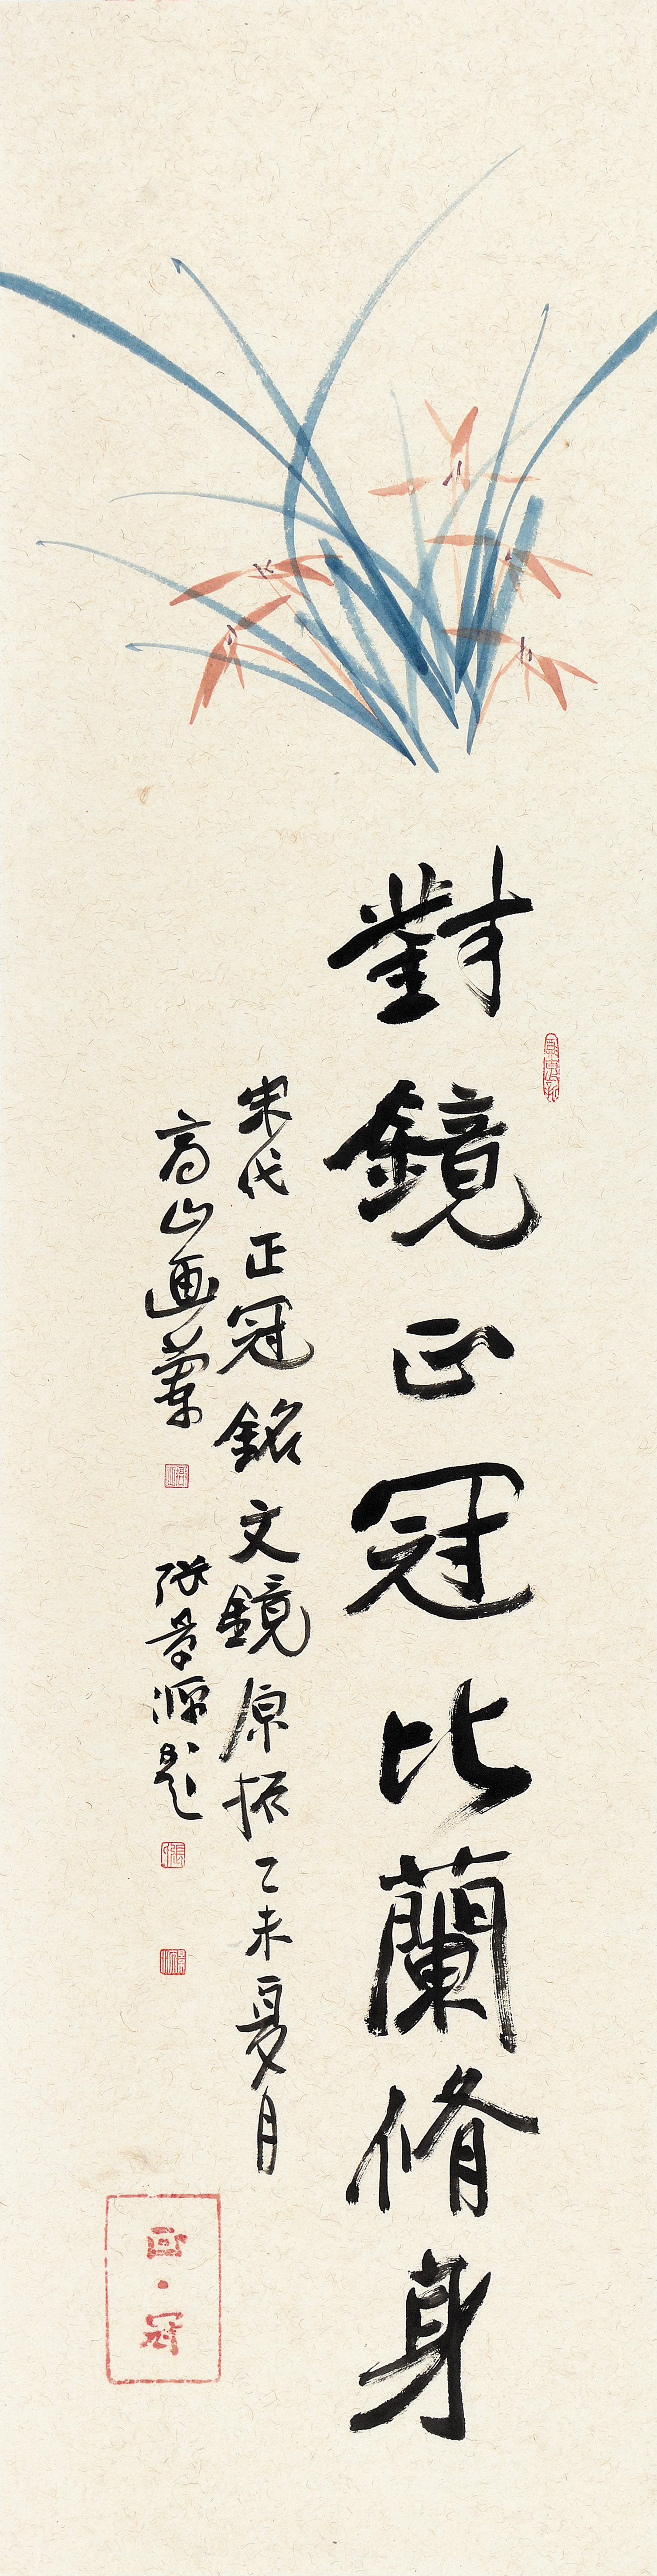 對鏡正冠比蘭脩身
宋代正冠銘文鏡原拓乙未夏月
高山画蘭
張景源題
正·冠